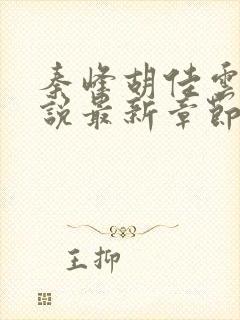 秦峰胡佳云
說最新章節
王抑